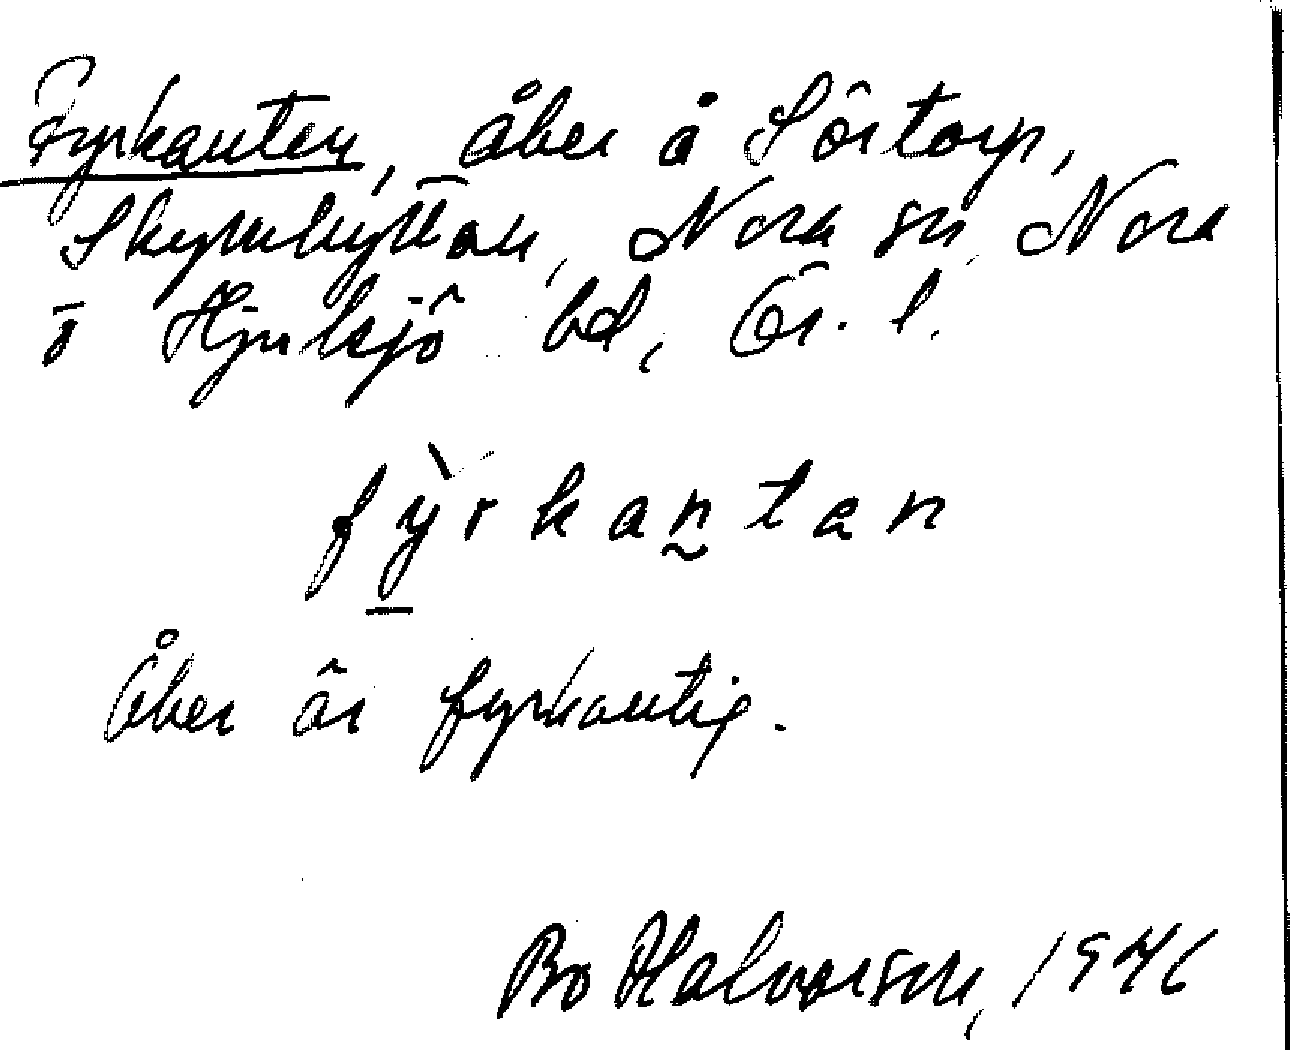 Fyrkanten, åker å Sörtorp,
Skymhyttan, Nora sn, Nora
o Hjulsjö bd, Ör. l.
fỳ̱rkantan
Åker är fyrkantig.
Bo Halvarson, 1946